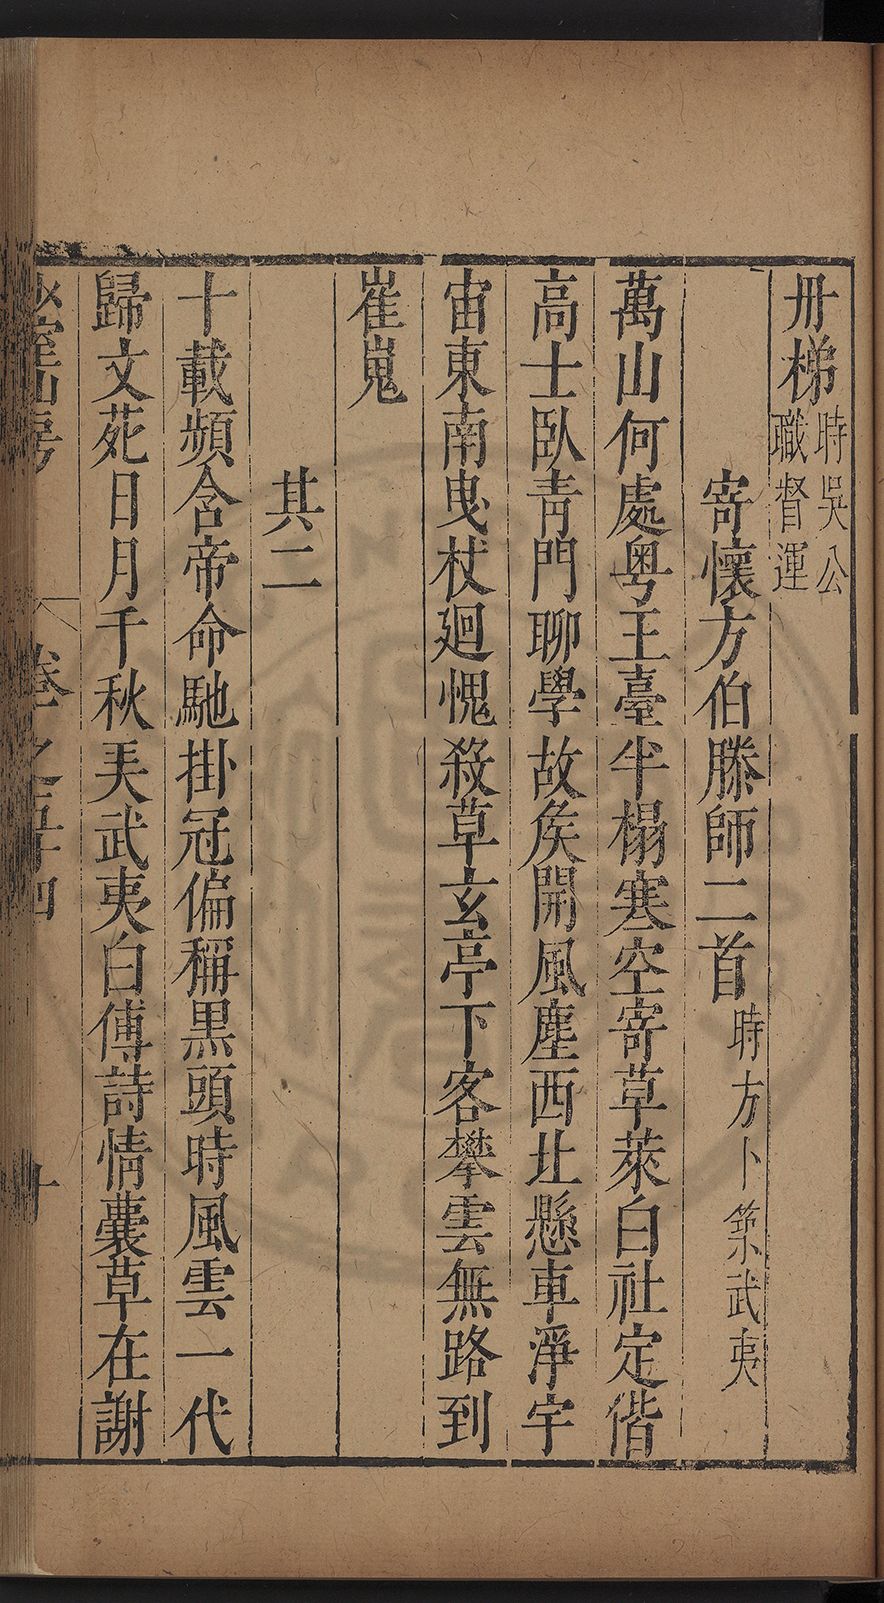 冊梯時吳公職督運
寄懷方伯滕師二首時方卜築武夷
萬山何處粵王臺半榻寒空寄草萊白社定偕
高士臥青門聊學故矦開風塵西北懸車淨宇
宙東南曳杖廻愧殺草玄亭下客攀雲無路到
崔嵬
其二
十載頻含帝命馳掛冠偏稱黒頭時風雲一代
歸文苑日月千秋美武夷白傅詩情囊草在謝
室山房
卷之五十四
十